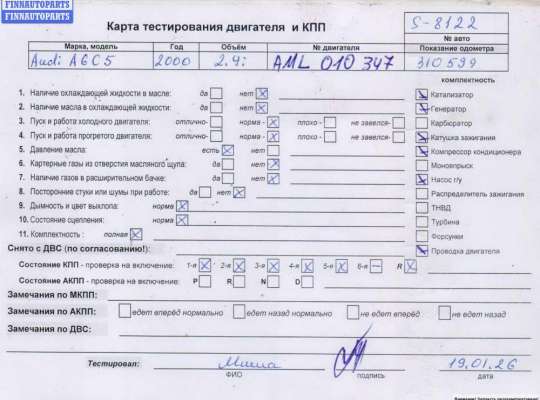 FINNAUTOPARTS
FINNAUTOPARTS
Карта тестирования двигателя и КПП
S-8122
№ авто
Марка, модель Год Объём № двигателя Показание одометра
Audi A6C5 2000 2.4i AML 010 347 310599
комплектность
1. Наличие охлаждающей жидкости в масле: да нет
Катализатор
2. Наличие масла в охлаждающей жидкости: да нет
Генератор
3. Пуск и работа холодного двигателя: отлично- норма - плохо - не завелся-
Карбюратор
4. Пуск и работа прогретого двигателя: отлично- норма - плохо - не завелся-
Катушка зажигания
5. Давление масла: есть нет
Компрессор кондиционера
6. Картерные газы из отверстия масляного щупа: да нет
Моновпрыск
7. Наличие газов в расширительном бачке: да нет
Насос г/у
8. Посторонние стуки или шумы при работе: да нет
Распределитель зажигания
9. Дымность и цвет выхлопа: норма
ТНВД
10. Состояние сцепления: норма
Турбина
11. Комплектность : полная
Форсунки
Снято с ДВС (по согласованию!):
Проводка двигателя
Состояние КПП - проверка на включение: 1-я 2-я 3-я 4-я 5-я 6-я R
Состояние АКПП - проверка на включение: P R N D
Замечания по МКПП:
Замечания по АКПП: едет вперёд нормально едет назад нормально не едет вперёд не едет назад
Замечания по ДВС:
Тестировал: 19.01.26
ФИО подпись дата